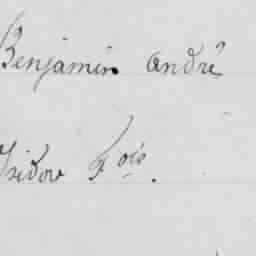 Benjamin André
Isidor Fois.